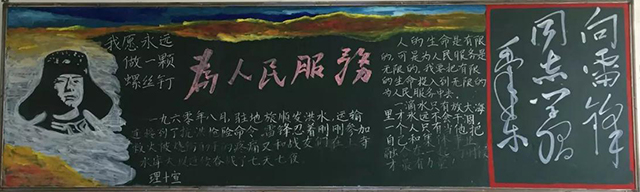 我愿永远
做一颗
螺丝钉
為人民服務
一九六零年八月，驻地抚顺发洪水，运输
连接到了抗洪抢险命令。雷锋忍着刚刚参加
救火被烧伤的手的疼痛又和战友们在上寺
水库大坝连续奋战了七天七夜
理十宣
人的生命是有限
的，可是为人民服务是
无限的，我要把有限的
生命投入到无限的
为人民服务中去。
一滴水只有放大海
里才永远不会干涸，
一个人只有当他把
自己和集体事业
才最有力量
向雷锋
同志学习
毛泽东